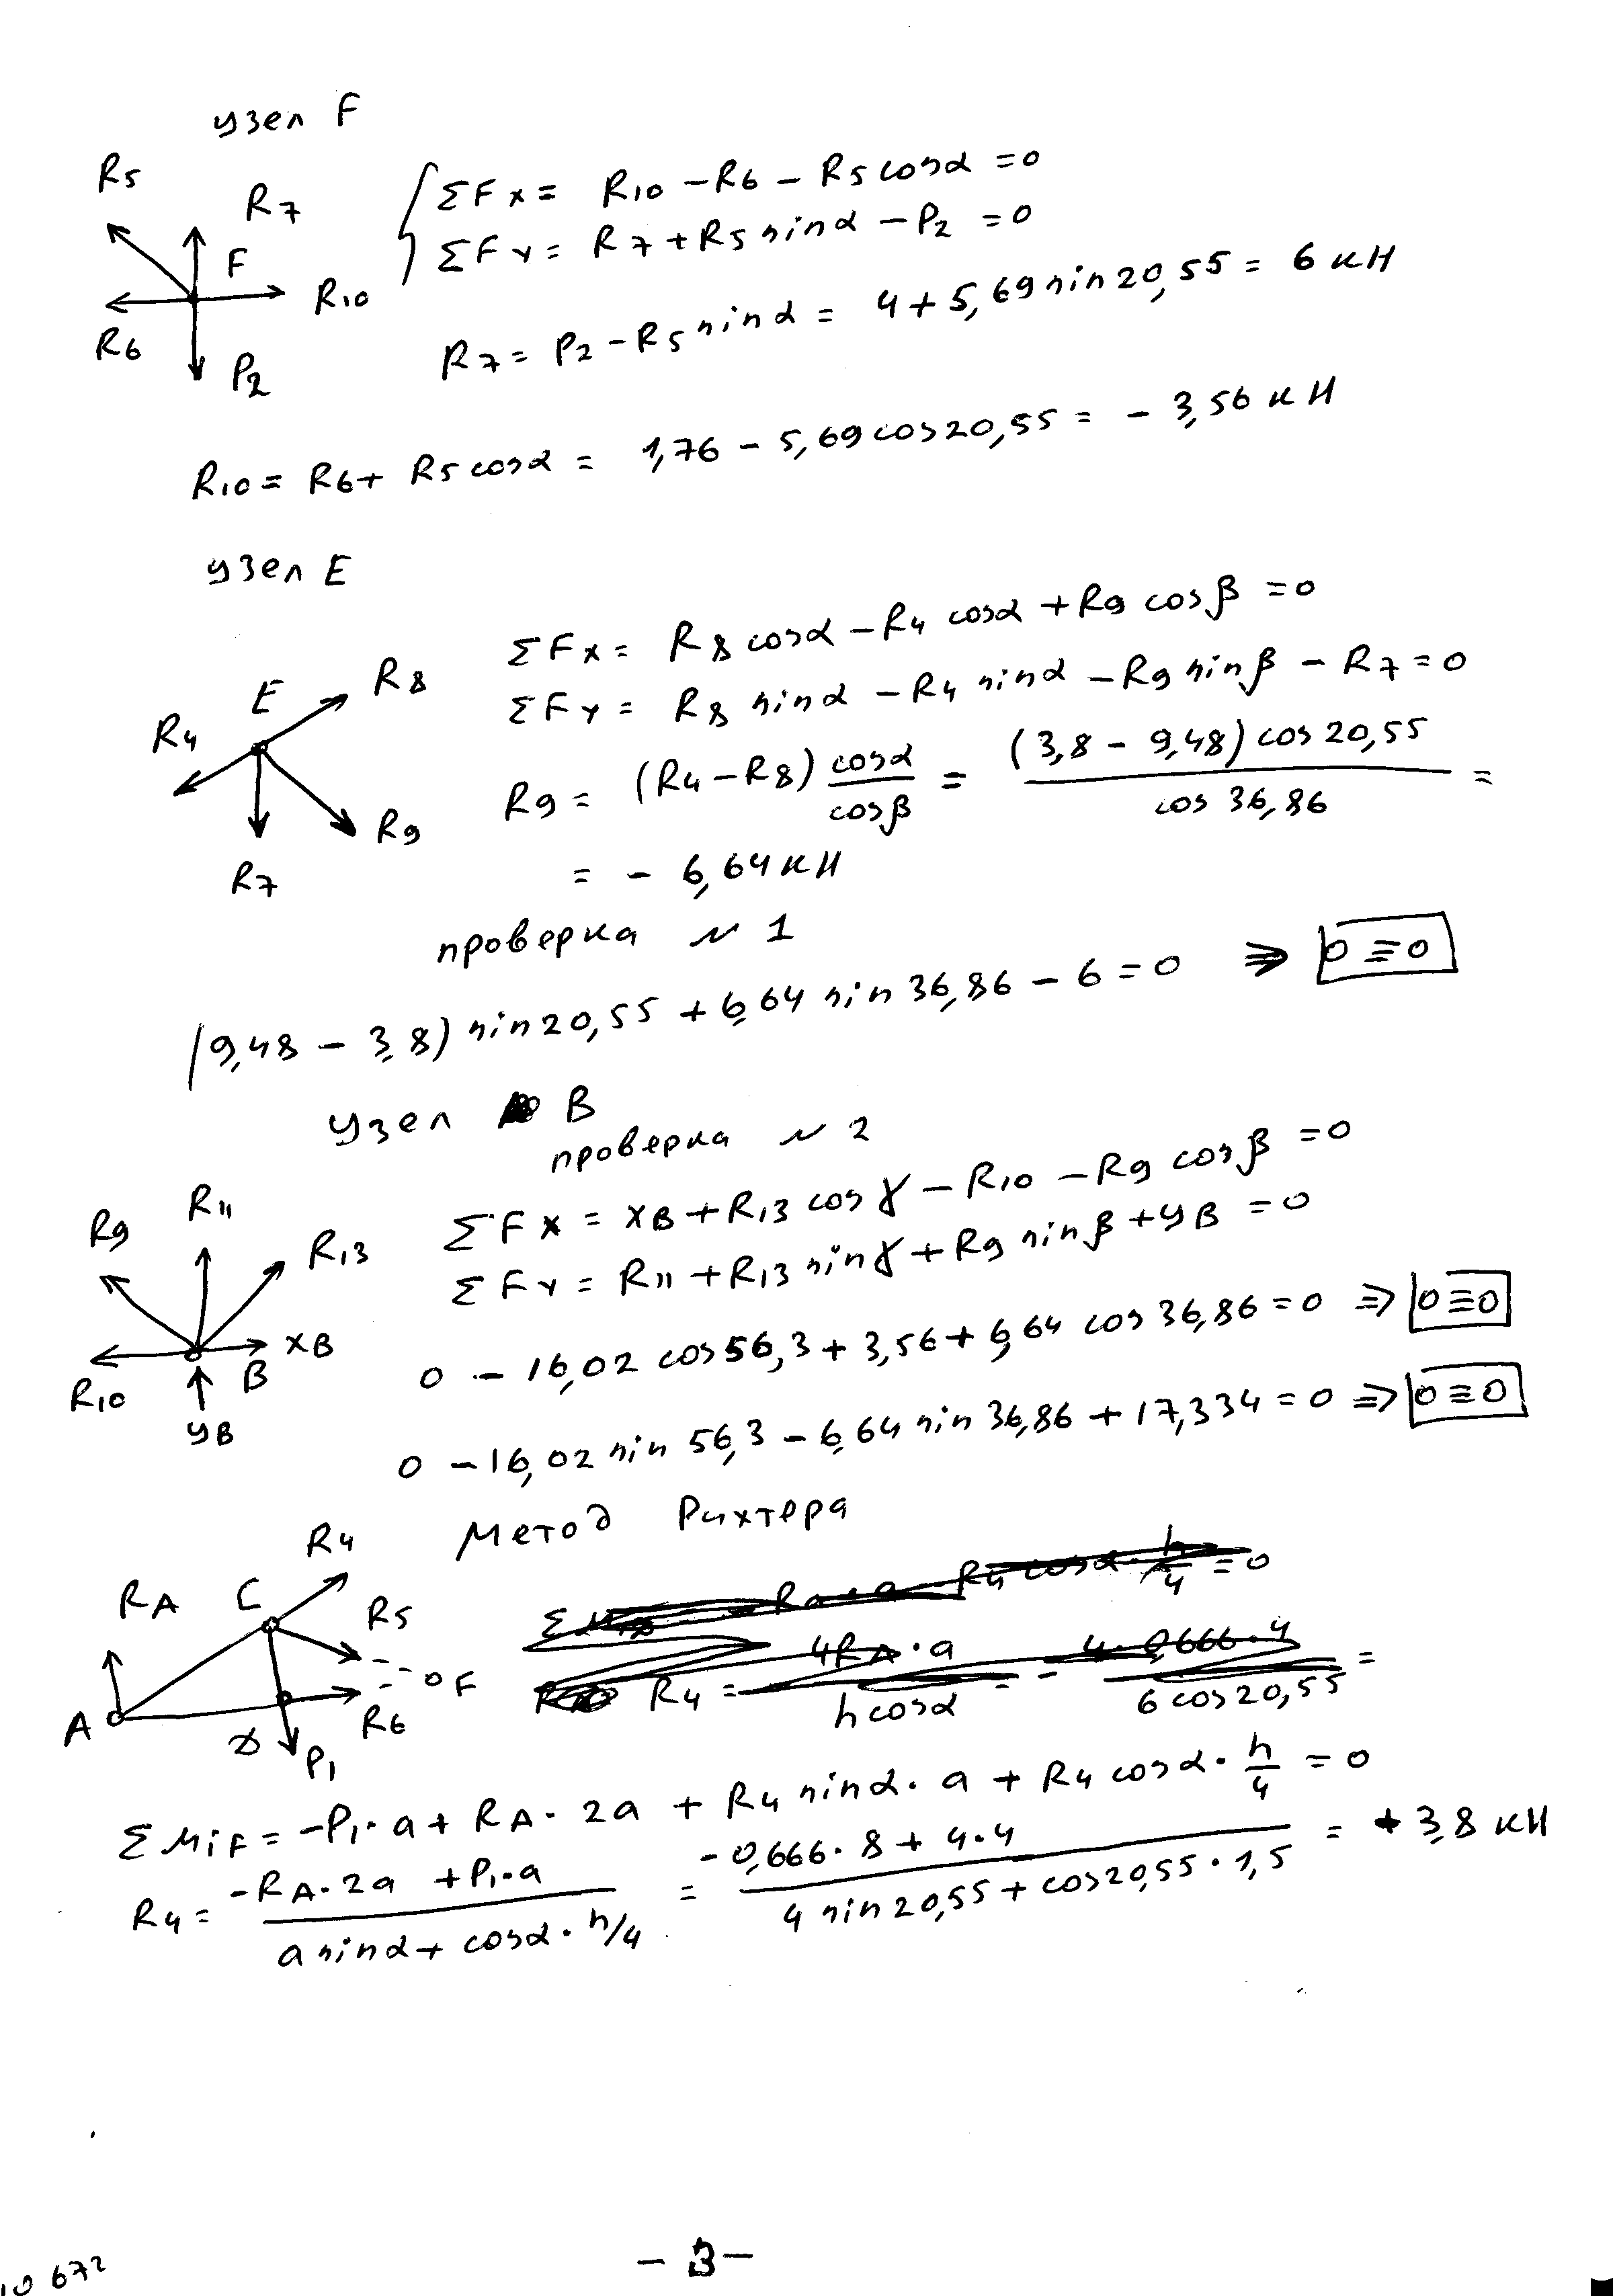 узел F
R5
R7
F
R10
R6
P2
ΣFx = R10 - R6 - R5 cosα = 0
ΣFy = R7 + R5 sinα - P2 = 0
R7 = P2 - R5 sinα = 4 + 5,69 sin 20,55 = 6 кН
R10 = R6 + R5 cosα = 1,76 - 5,69 cos 20,55 = - 3,56 кН
узел E
E
R8
R4
R9
R7
ΣFx = R8 cosα - R4 cosα + R9 cosβ = 0
ΣFy = R8 sinα - R4 sinα - R9 sinβ - R7 = 0
R9 = (R4 - R8) cosα / cosβ = (3,8 - 9,48) cos 20,55 / cos 36,86 =
= - 6,64 кН
проверка N 1
(9,48 - 3,8) sin 20,55 + 6,64 sin 36,86 - 6 = 0 => 0 ≡ 0
узел B
проверка N 2
R9
R11
R13
R10
B
XB
YB
ΣFx = XB + R13 cosγ - R10 - R9 cosβ = 0
ΣFy = R11 + R13 sinγ + R9 sinβ + YB = 0
0 - 16,02 cos 56,3 + 3,56 + 6,64 cos 36,86 = 0 => 0 ≡ 0
0 - 16,02 sin 56,3 - 6,64 sin 36,86 + 17,334 = 0 => 0 ≡ 0
Метод Риттера
R4
RA
C
R5
F
A
D
P1
R6
R4 cosα · h/4 = 0
R4 = 4RA · a / h cosα = 4 · 0,666 · 4 / 6 cos 20,55 =
ΣMiF = -P1 · a + RA · 2a + R4 sinα · a + R4 cosα · h/4 = 0
R4 = -RA · 2a + P1 · a / a sinα + cosα · h/4 = -0,666 · 8 + 4 · 4 / 4 sin 20,55 + cos 20,55 · 1,5 = + 3,8 кН
- 3 -
672